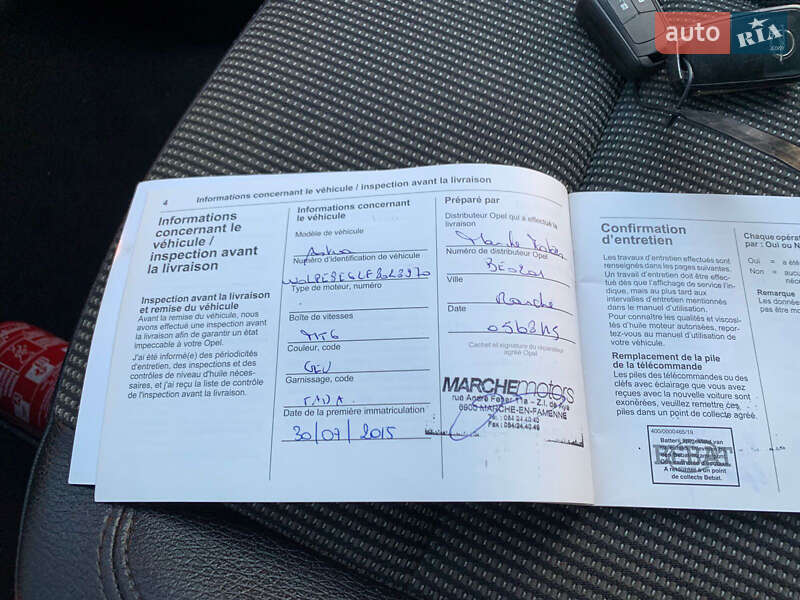 auto RIA
.com
4 Informations concernant le véhicule / inspection avant la livraison
Informations
concernant le
véhicule /
inspection avant
la livraison
Inspection avant la livraison
et remise du véhicule
Avant la remise du véhicule, nous
avons effectué une inspection avant
la livraison afin de garantir un état
impeccable à votre Opel.
J'ai été informé(e) des périodicités
d'entretien, des inspections et des
contrôles de niveau d'huile néces-
saires, et j'ai reçu la liste de contrôle
de l'inspection avant la livraison.
Informations concernant
le véhicule
Modèle de véhicule
Astra
Numéro d'identification de véhicule
Type de moteur, numéro
Boîte de vitesses
Couleur, code
GEU
Garnissage, code
Date de la première immatriculation
30/07/2015
Préparé par
Distributeur Opel qui a effectué la
livraison
Marche
Numéro de distributeur Opel
Ville
Marche
Date
Cachet et signature du réparateur
agréé Opel
MARCHE motors
rue André Feher 11a - Z.I. de Aye
6900 MARCHE-EN-FAMENNE
Confirmation
d'entretien
Les travaux d'entretien effectués sont
renseignés dans les pages suivantes.
Un travail d'entretien doit être effec-
tué dès que l'affichage de service l'in-
dique, mais au plus tard aux
intervalles d'entretien mentionnés
dans le manuel d'utilisation.
Pour connaître les qualités et viscosi-
tés d'huile moteur autorisées, repor-
tez-vous au manuel d'utilisation de
votre véhicule.
Remplacement de la pile
de la télécommande
Les piles des télécommandes ou des
clefs avec éclairage que vous avez
reçues avec la nouvelle voiture sont
exonérées, veuillez remettre ces
piles dans un point de collecte agréé.
400/0000465/19
BEBAT
A retourner à un point
de collecte Bebat.
Chaque opérat
par : Oui ou N
Oui = a été
Non = aucu
néce
Remarque
Les donnée
pas être mo